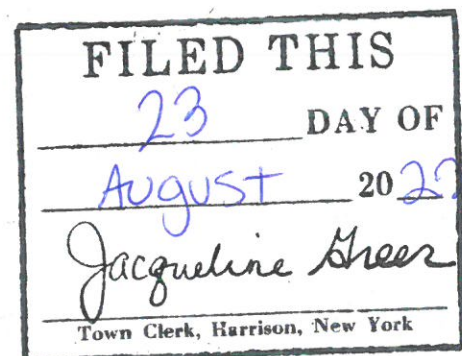 FILED THIS
23 DAY OF
August 20
Jacqueline Greer
Town Clerk, Harrison, New York